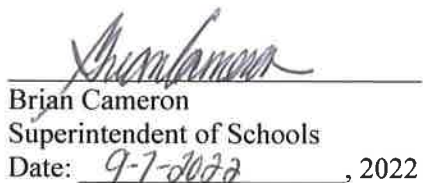 Brian Cameron
Brian Cameron
Superintendent of Schools
Date: 9-7-2022, 2022